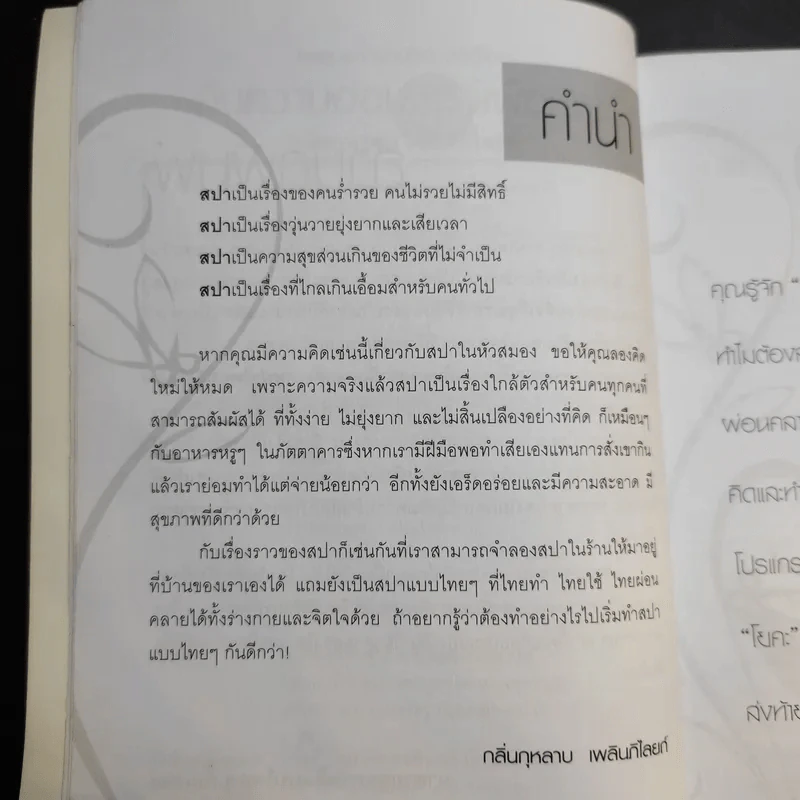 คำนำ
สปาเป็นเรื่องของคนร่ำรวย คนไม่รวยไม่มีสิทธิ์
สปาเป็นเรื่องวุ่นวายยุ่งยากและเสียเวลา
สปาเป็นความสุขส่วนเกินของชีวิตที่ไม่จำเป็น
สปาเป็นเรื่องที่ไกลเกินเอื้อมสำหรับคนทั่วไป
หากคุณมีความคิดเช่นนี้เกี่ยวกับสปาในหัวสมอง ขอให้คุณลองคิด
ใหม่ให้หมด เพราะความจริงแล้วสปาเป็นเรื่องใกล้ตัวสำหรับคนทุกคนที่
สามารถสัมผัสได้ ที่ทั้งง่าย ไม่ยุ่งยาก และไม่สิ้นเปลืองอย่างที่คิด ก็เหมือนๆ
กับอาหารหรูๆ ในภัตตาคารซึ่งหากเรามีฝีมือพอทำเสียเองแทนการสั่งเขากิน
แล้วเราย่อมทำได้แต่จ่ายน้อยกว่า อีกทั้งยังเอร็ดอร่อยและมีความสะอาด มี
สุขภาพที่ดีกว่าด้วย
กับเรื่องราวของสปาก็เช่นกันที่เราสามารถจำลองสปาในร้านให้มาอยู่
ที่บ้านของเราเองได้ แถมยังเป็นสปาแบบไทยๆ ที่ไทยทำ ไทยใช้ ไทยผ่อน
คลายได้ทั้งร่างกายและจิตใจด้วย ถ้าอยากรู้ว่าต้องทำอย่างไรไปเริ่มทำสปา
แบบไทยๆ กันดีกว่า!
กลิ่นกุหลาบ เพลินภิไลยท์
คุณรู้จัก "
ทำไมต้อง
ผ่อนคลา
คิดและทำ
โปรแกร
"โยคะ"
ส่งท้าย